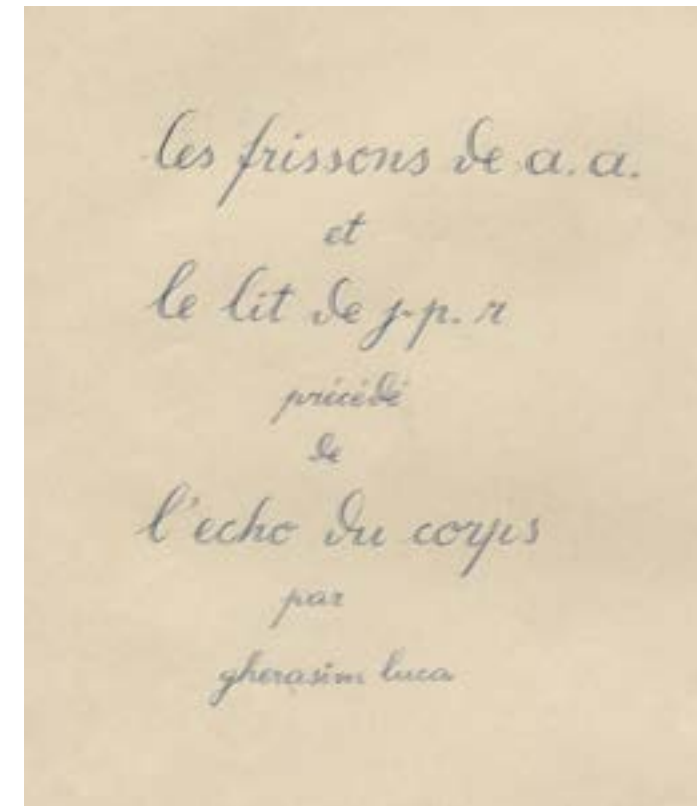 les frissons de a. a.
et
le lit de j-p. r
précédé
de
l'echo du corps
par
gherasim luca